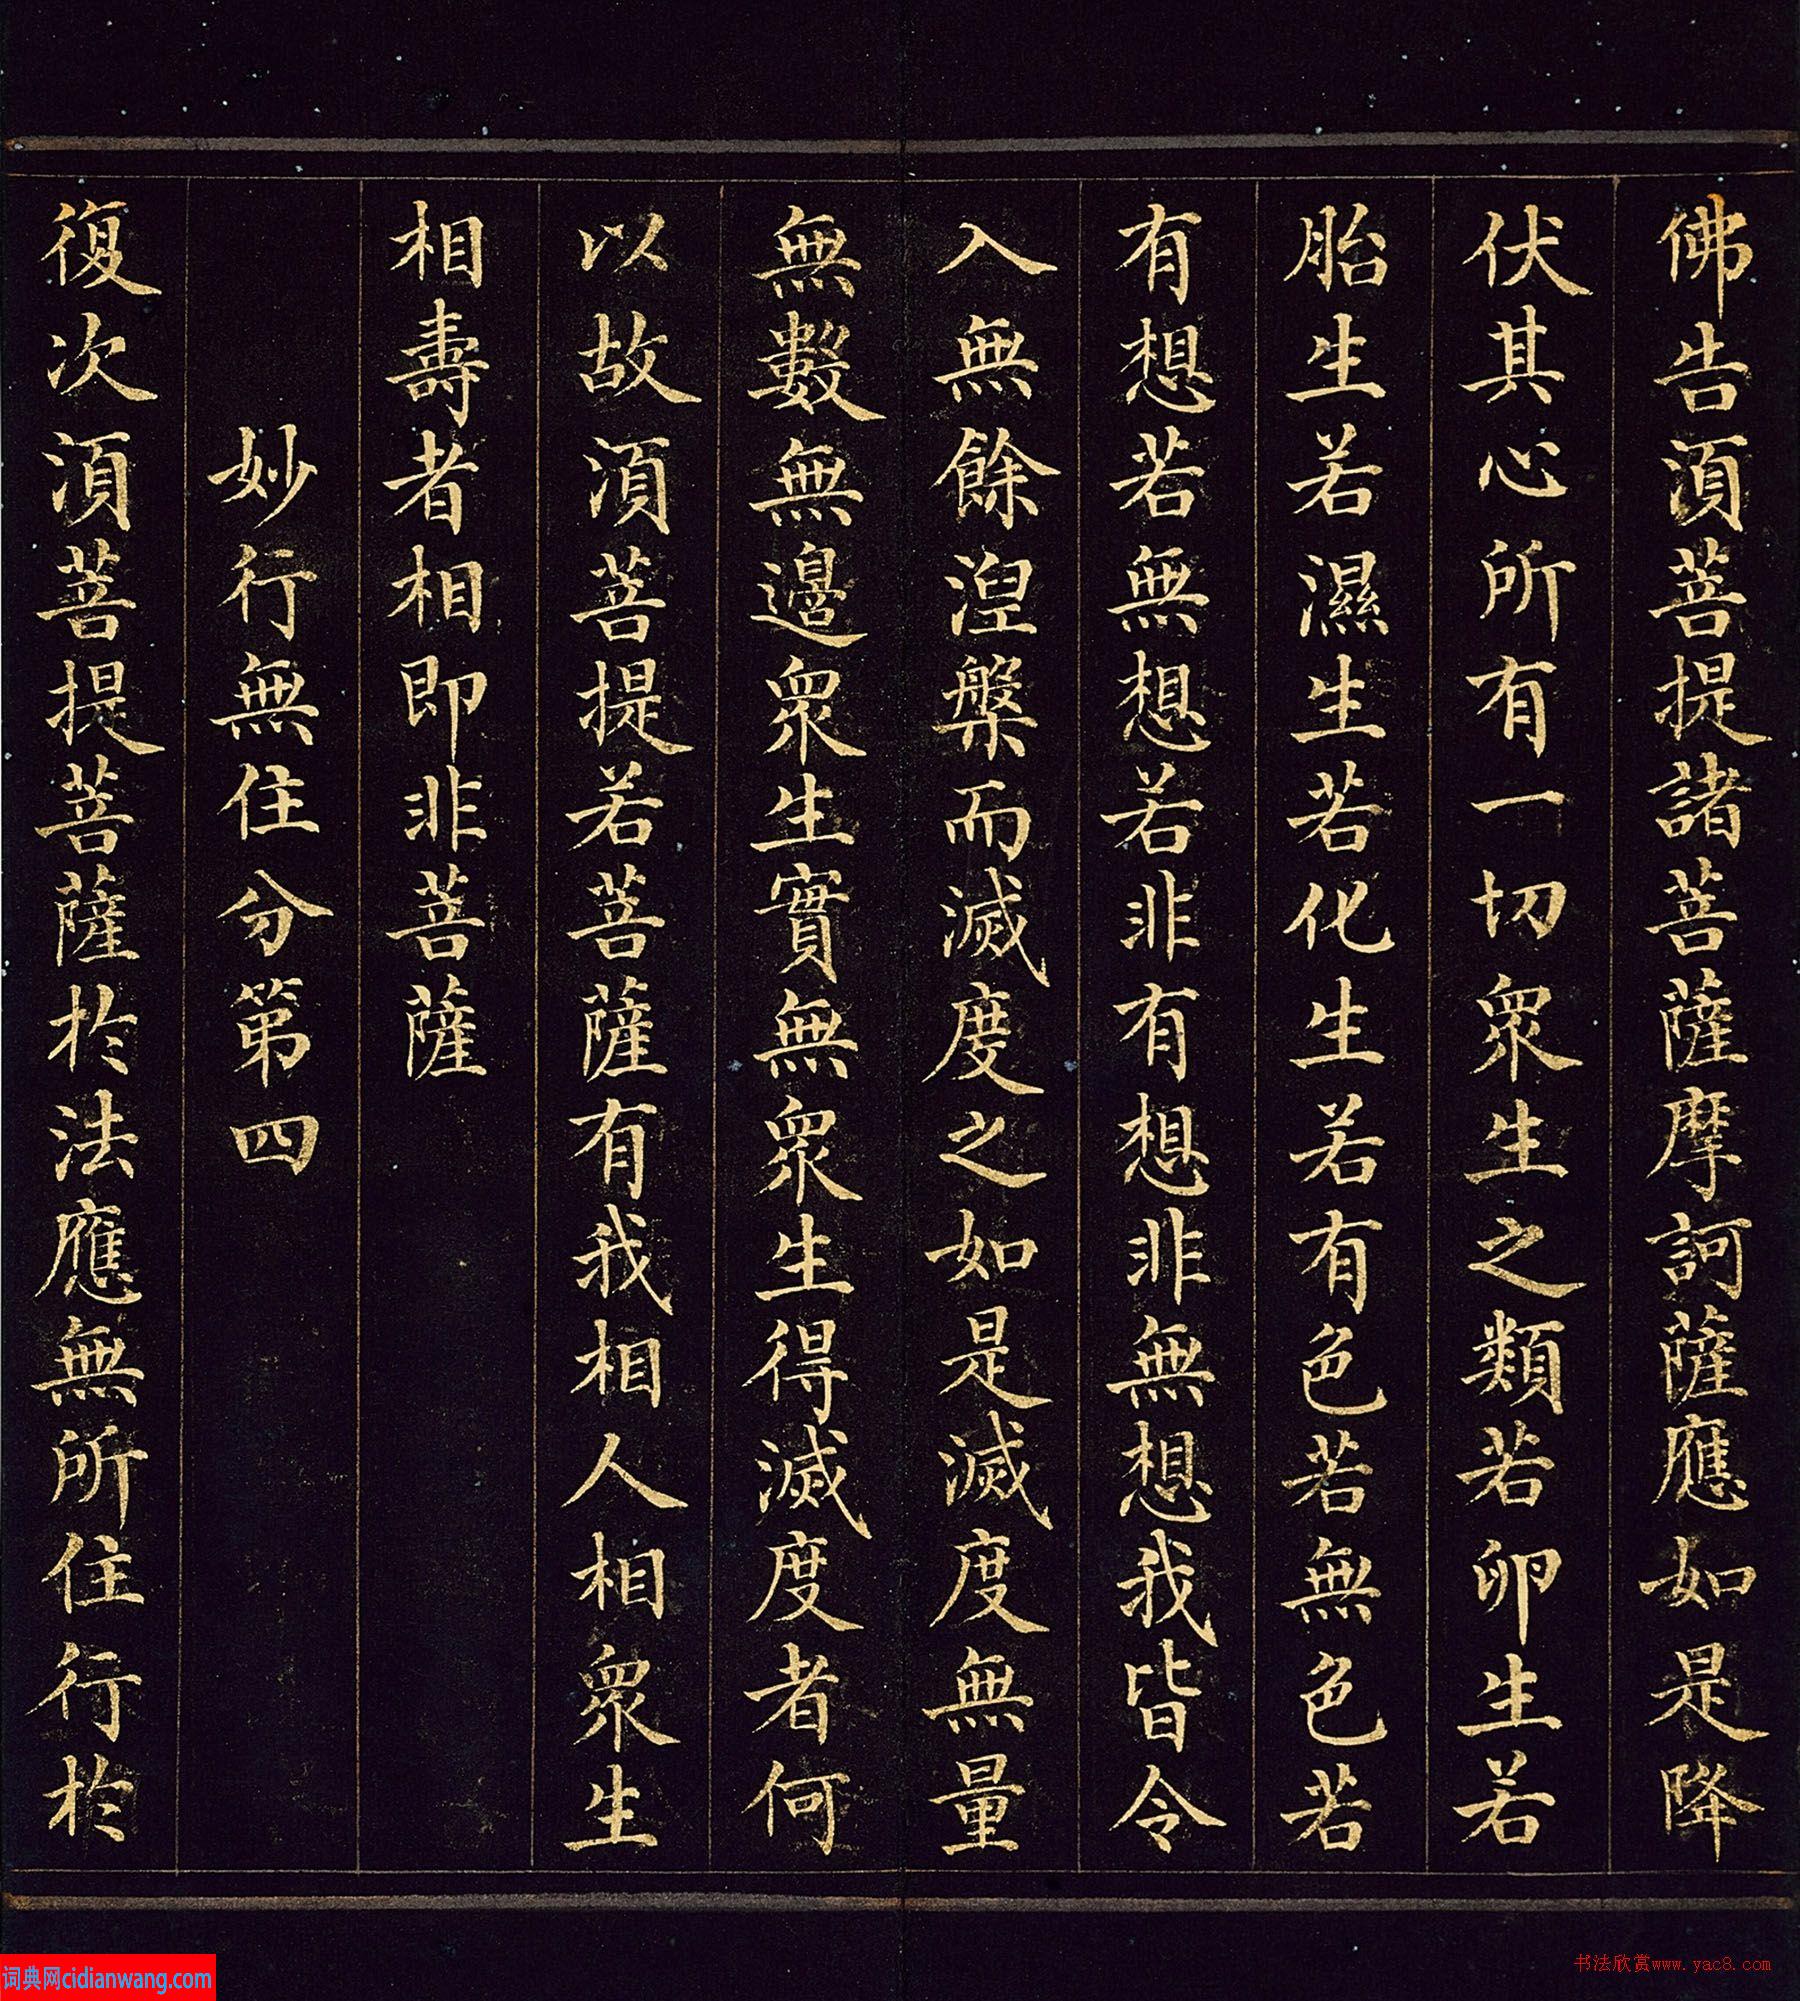 佛告湏菩提諸菩薩摩訶薩應如是降
伏其心所有一切衆生之類若卵生若
胎生若濕生若化生若有色若無色若
有想若無想若非有想非無想我皆令
入無餘涅槃而滅度之如是滅度無量
無數無邊衆生實無衆生得滅度者何
以故湏菩提若菩薩有我相人相衆生
相壽者相即非菩薩
妙行無住分第四
復次湏菩提菩薩於法應無所住行於
词典网cidianwang.com
书法欣赏www.yac8.com